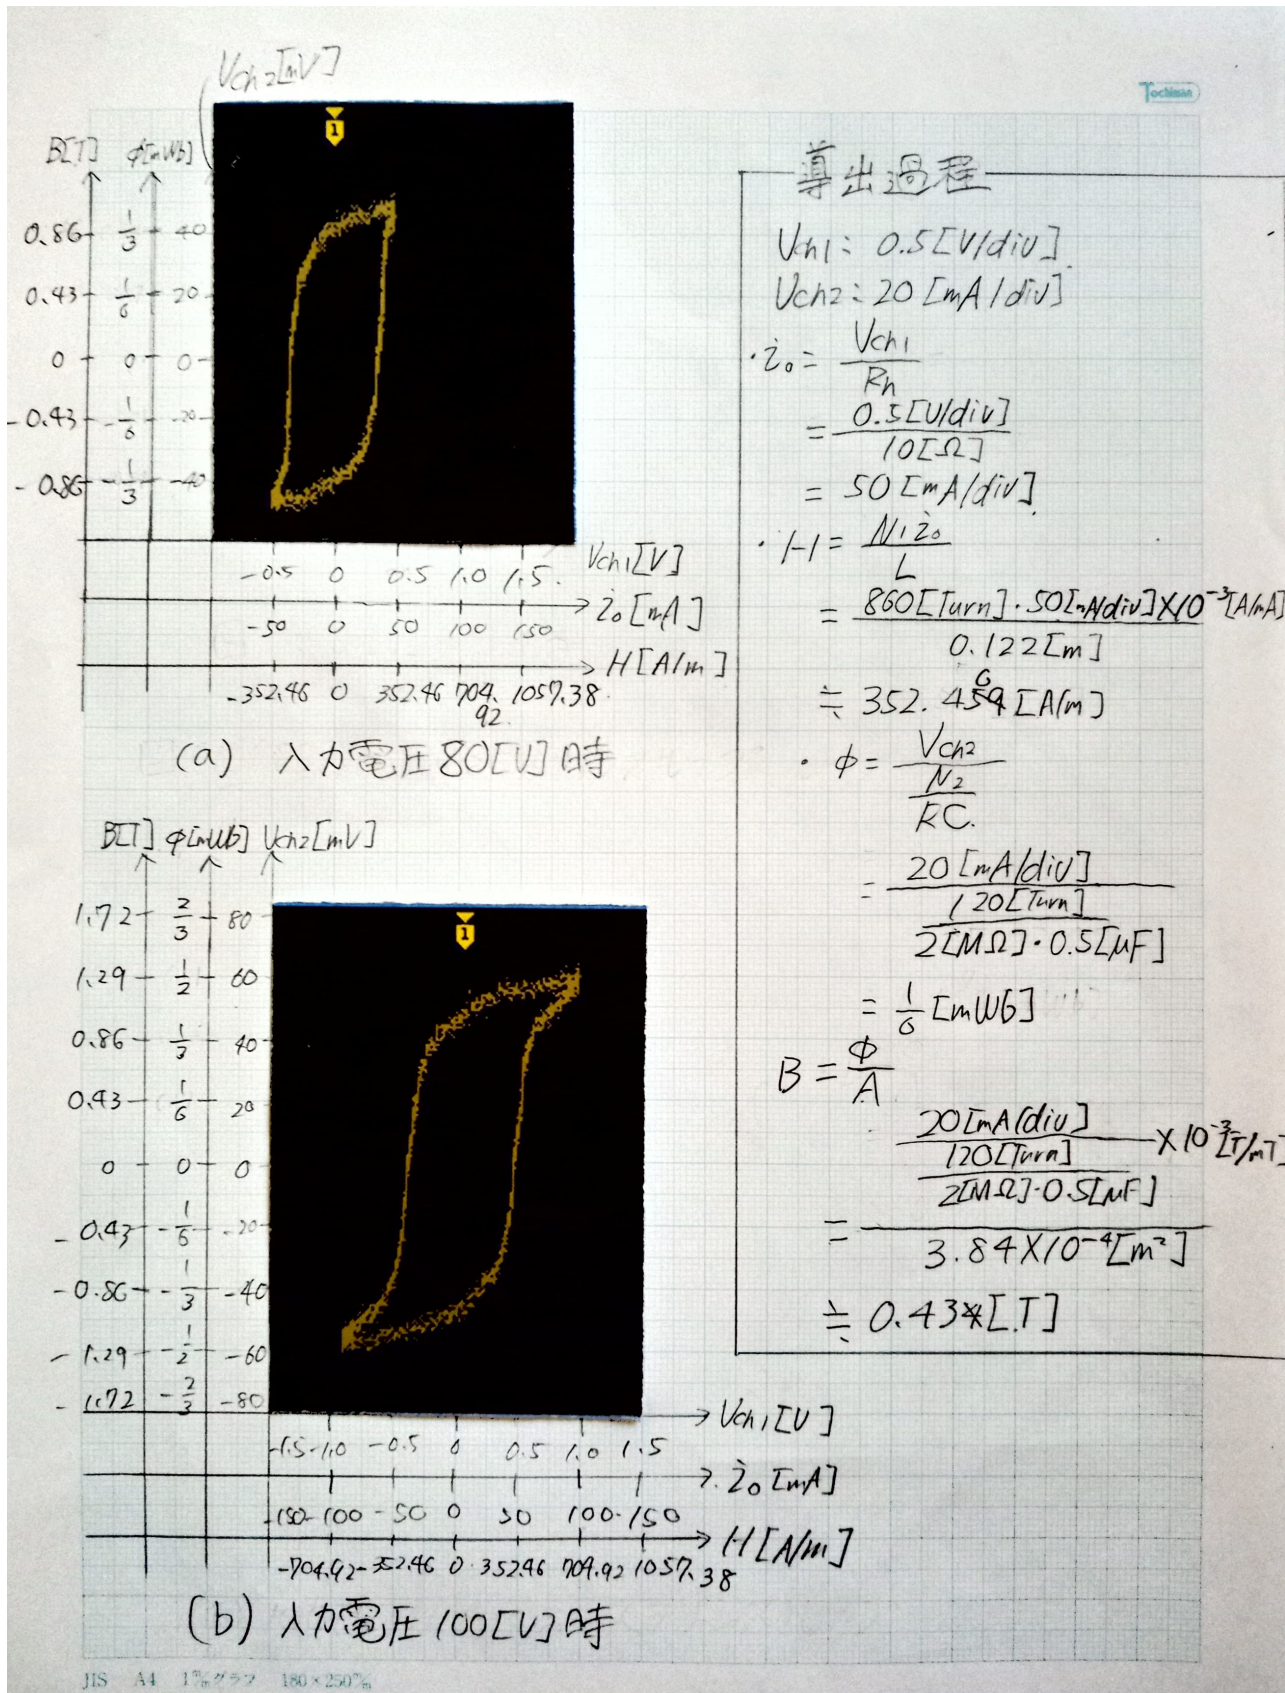 Vch2[mV]
Tochiman
B[T] φ[mWb]
1
0.86 1/3 40
0.43 1/6 20
0 0 0
-0.43 -1/6 -20
-0.86 -1/3 -40
-0.5 0 0.5 1.0 1.5 Vch1[V]
-50 0 50 100 150 i₀[mA]
-352.46 0 352.46 704.92 1057.38 H[A/m]
(a) 入力電圧80[V]時
B[T] φ[mWb] Vch2[mV]
1
1.72 2/3 80
1.29 1/2 60
0.86 1/3 40
0.43 1/6 20
0 0 0
-0.43 -1/6 -20
-0.86 -1/3 -40
-1.29 -1/2 -60
-1.72 -2/3 -80
-1.5 -1.0 -0.5 0 0.5 1.0 1.5 Vch1[V]
-150 -100 -50 0 50 100 150 i₀[mA]
-704.92 -352.46 0 352.46 704.92 1057.38 H[A/m]
(b) 入力電圧100[V]時
導出過程
Vch1: 0.5[V/div]
Vch2: 20[mA/div]
・i₀ = Vch1 / Rh
= 0.5[V/div] / 10[Ω]
= 50[mA/div]
・H = N1 i₀ / L
= 860[Turn]・50[mA/div]×10⁻³[A/mA] / 0.122[m]
≒ 352.46[A/m]
・φ = Vch2 / (N2 / RC)
= 20[mA/div] / (120[Turn] / 2[MΩ]・0.5[μF])
= 1/6[mWb]
B = φ / A
= 20[mA/div] / (120[Turn] / 2[MΩ]・0.5[μF]) ×10⁻³[T/mT] / 3.84×10⁻⁴[m²]
≒ 0.43[T]
JIS A4 1㎜グラフ 180×250㎜